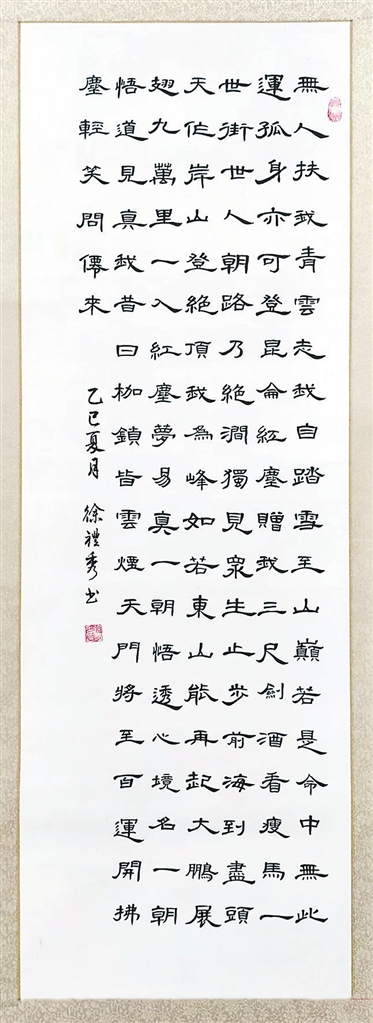 無人扶我青雲志我自踏雪至山巔若是命中無此
運孤身亦可登昆侖紅塵贈我三尺劍酒看瘦馬一
世街世人朝路乃絕澗獨見眾生止步前海到盡頭
天作岸山登絕頂我為峰如若東山能再起大鵬展
翅九萬里一入紅塵夢易真一朝悟透心境名一朝
悟道見真我昔日枷鎖皆雲煙天門將至百運開拂
塵輕笑問僊來
乙巳夏月 徐禮秀书